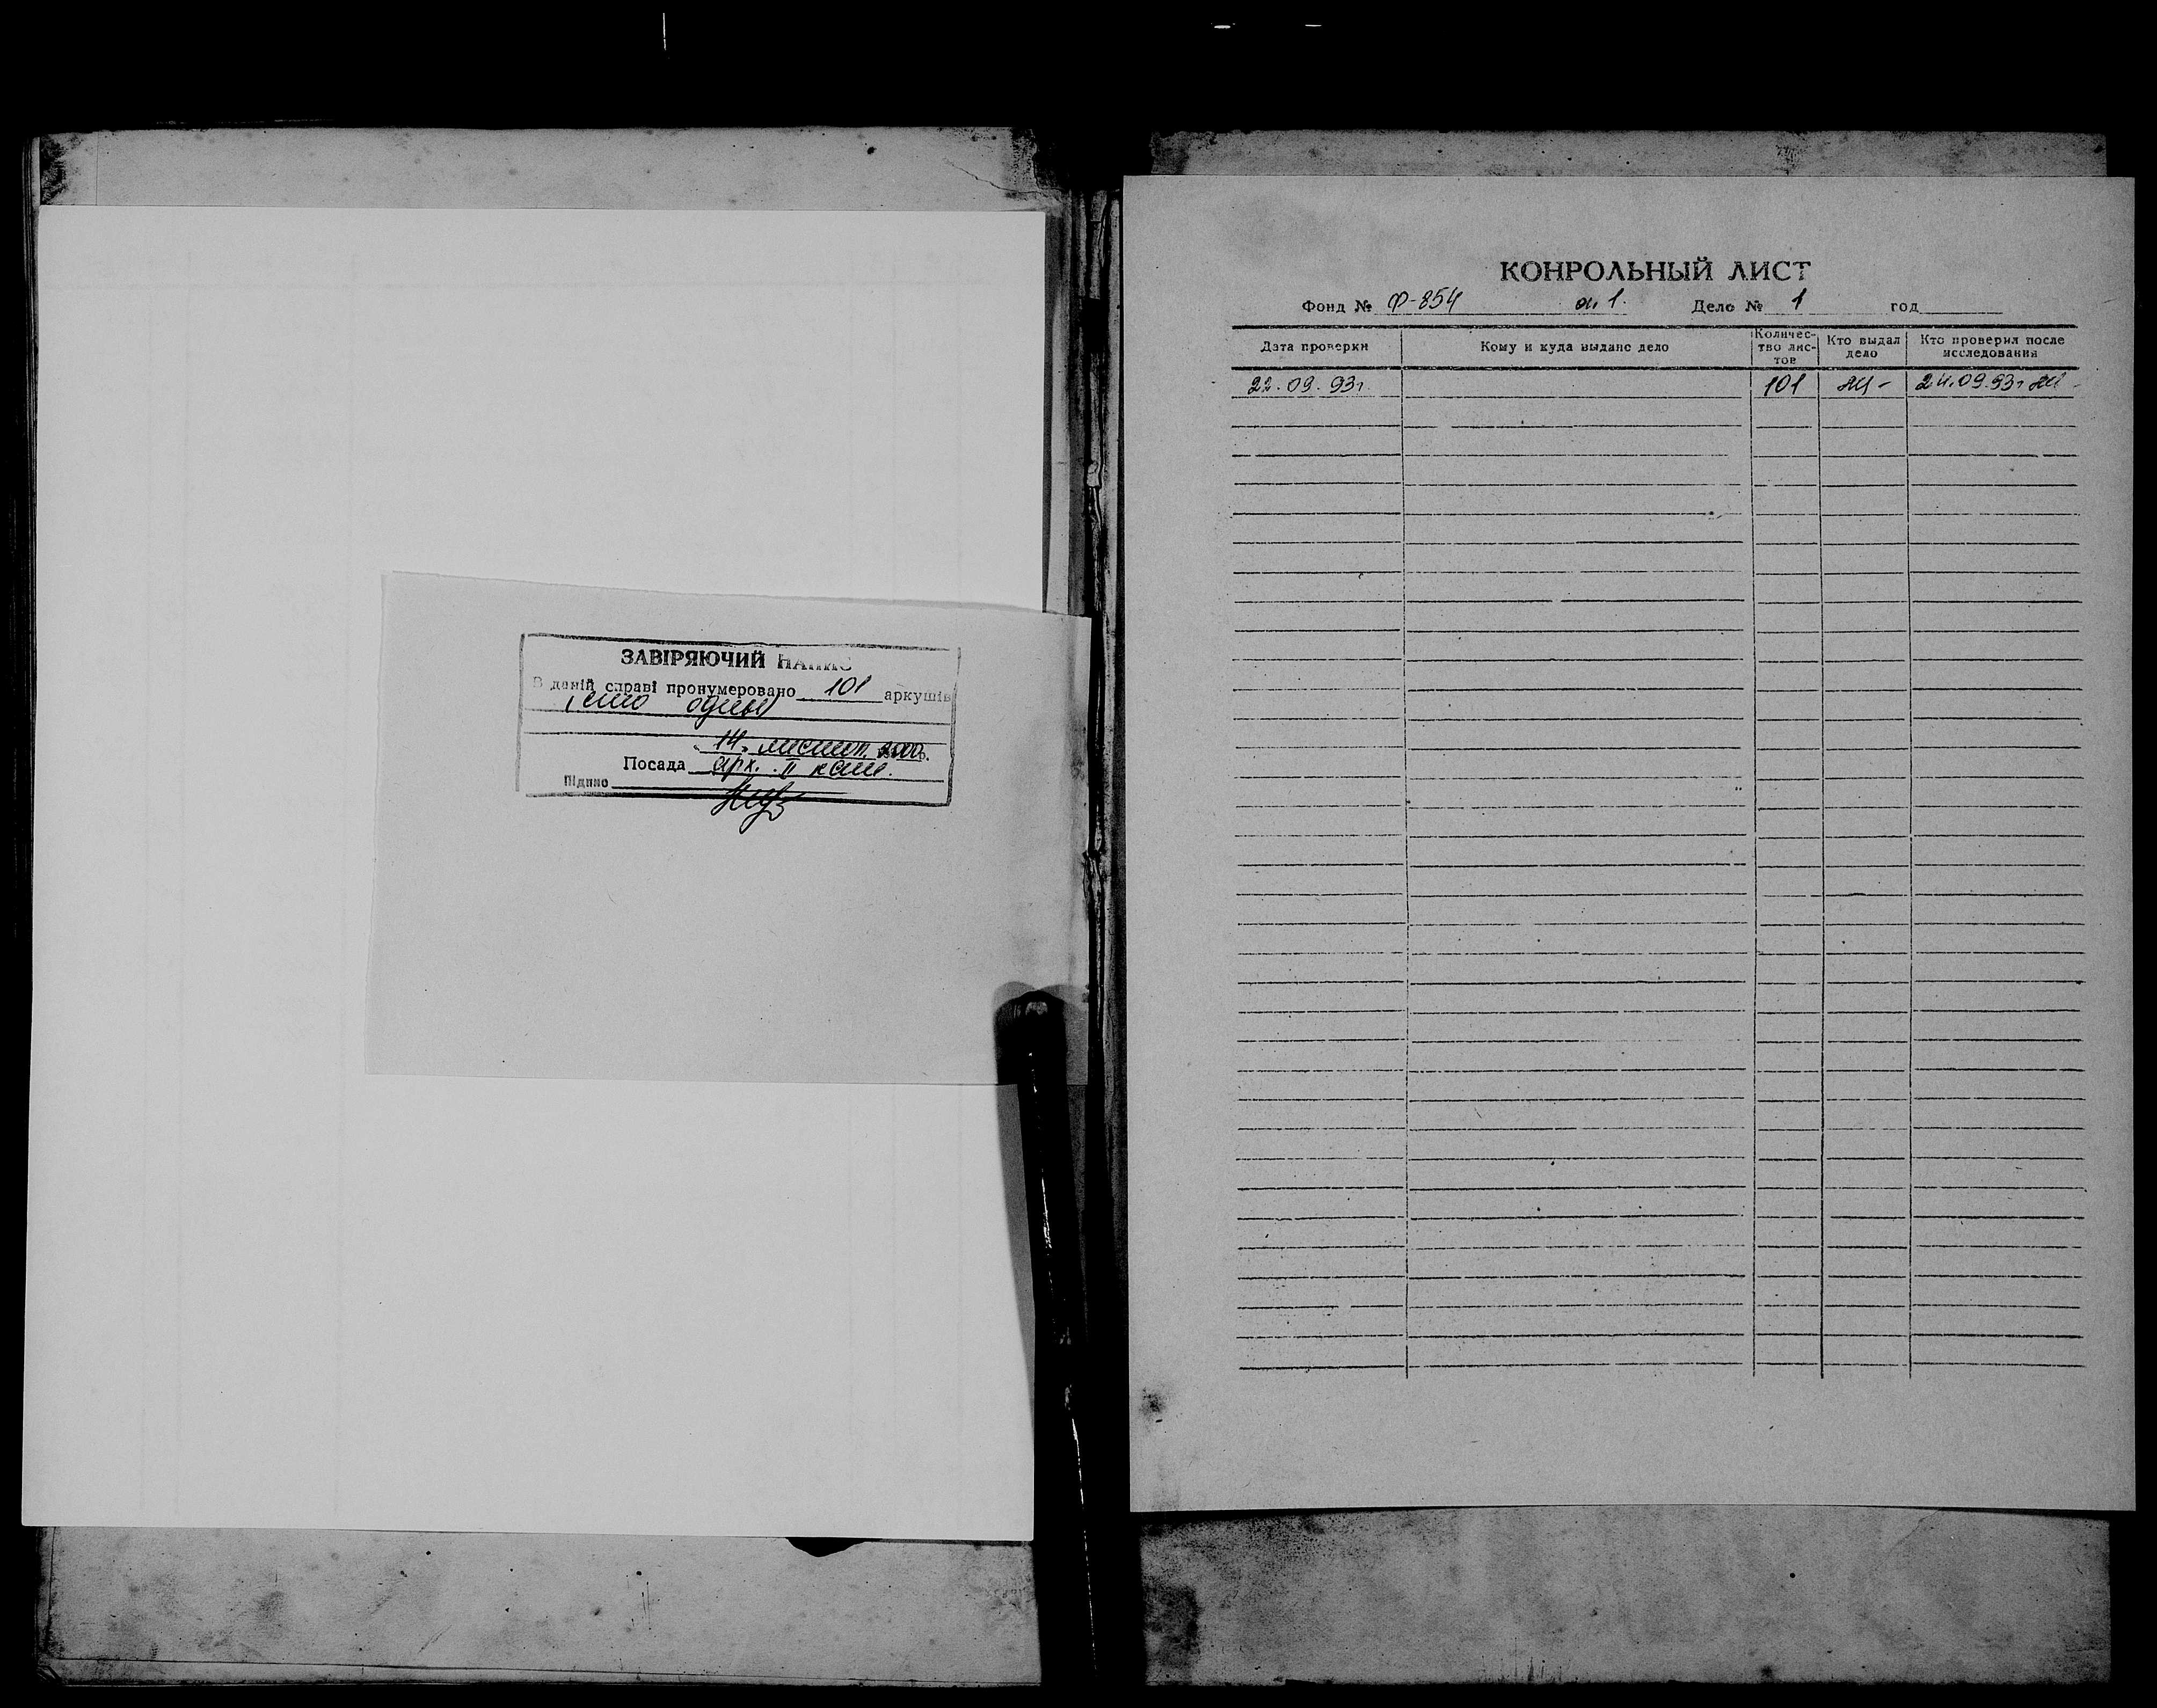 ЗАВІРЯЮЧИЙ НАПИС
В даній справі пронумеровано 101 аркушів
(сто один)
14. листоп. 2000р.
Посада арх. II кат.
Підпис
КОНРОЛЬНЫЙ ЛИСТ
Фонд № Ф-854 оп. 1. Дело № 1 год
Дата проверки Кому и куда выдано дело Количес-тво лис-тов Кто выдал дело Кто проверил после исследования
22.09.93г. 101 24.09.93г